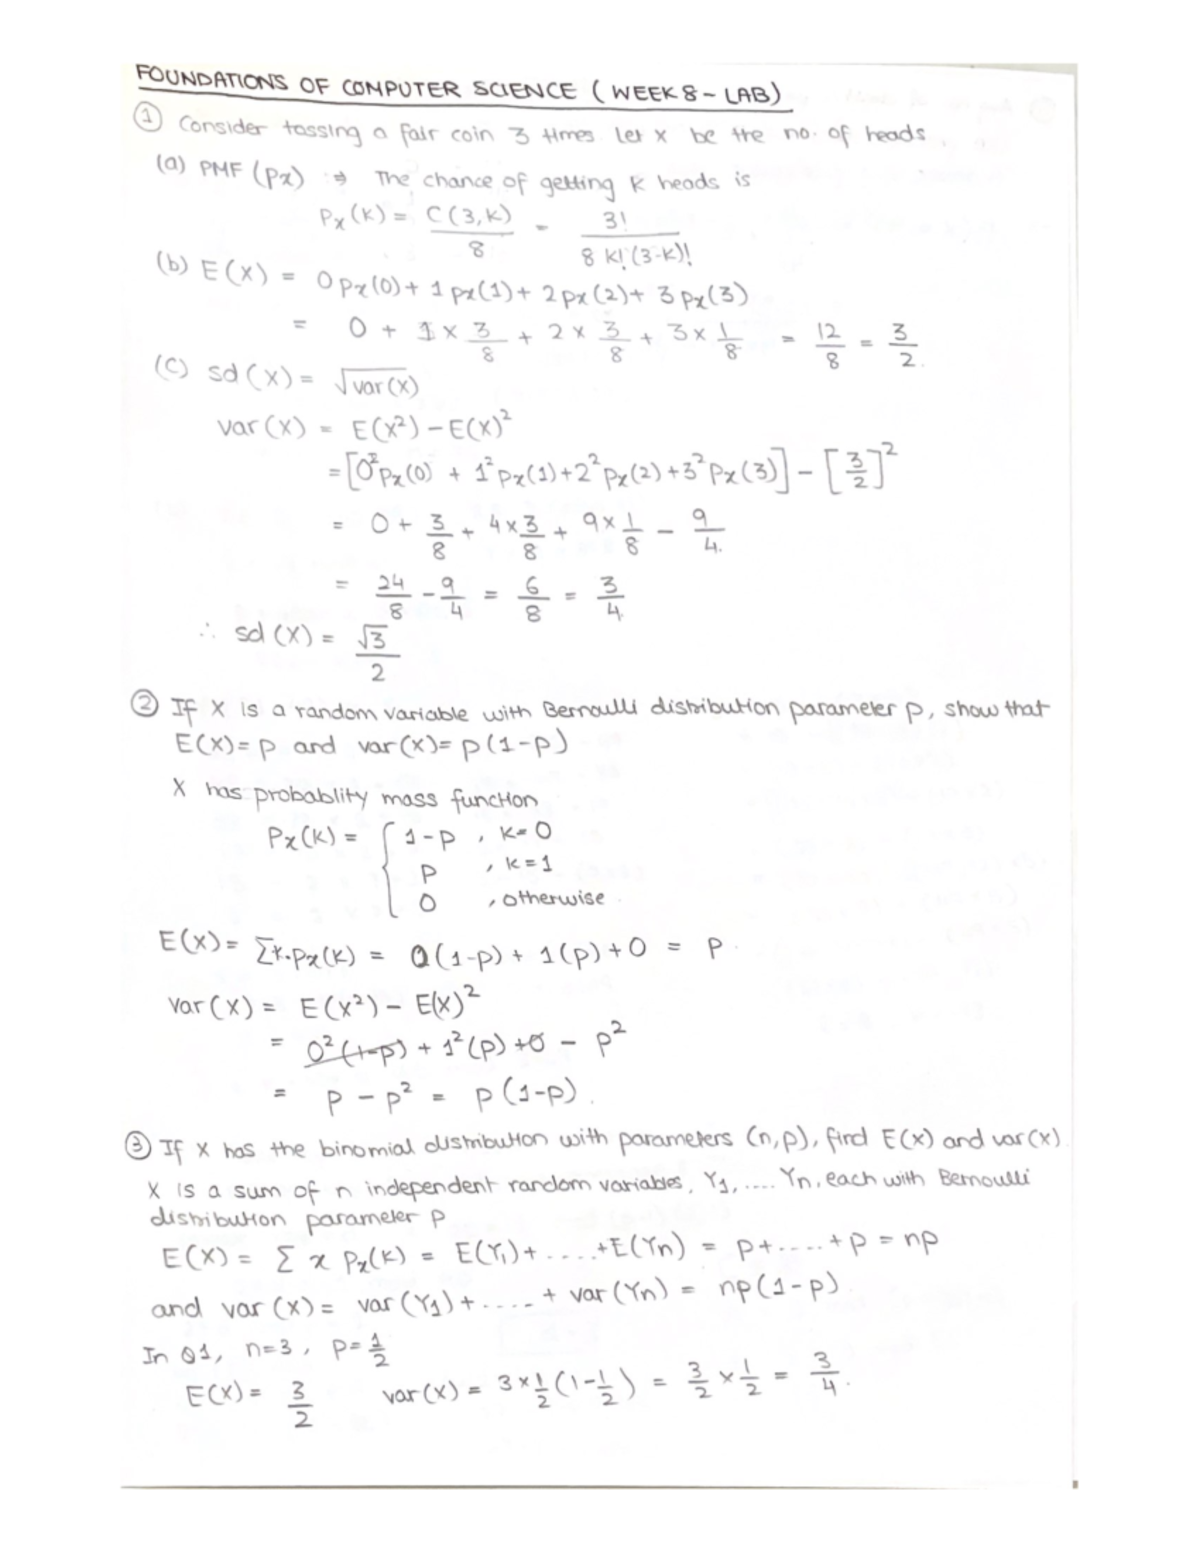 FOUNDATIONS OF COMPUTER SCIENCE (WEEK 8 - LAB)
① Consider tossing a fair coin 3 times. Let x be the no. of heads.
(a) PMF (px) ⇒ The chance of getting k heads is
Px(k) = C(3,k)/8 = 3!/(8 k!(3-k)!)
(b) E(X) = 0px(0) + 1px(1) + 2px(2) + 3px(3)
= 0 + 1 × 3/8 + 2 × 3/8 + 3 × 1/8 = 12/8 = 3/2.
(C) sd(X) = √var(x)
var(X) = E(X²) - E(X)²
= [0²px(0) + 1²px(1) + 2²px(2) + 3²px(3)] - [3/2]²
= 0 + 3/8 + 4×3/8 + 9×1/8 - 9/4.
= 24/8 - 9/4 = 6/8 = 3/4.
∴ sd(X) = √3/2
② If X is a random variable with Bernoulli distribution parameter p, show that
E(X) = p and var(x) = p(1-p)
X has probablity mass function
Px(k) = { 1-p , k=0
p , k=1
0 , otherwise.
E(X) = Σk.px(k) = 0(1-p) + 1(p) + 0 = p.
var(X) = E(X²) - E(X)²
= 0²(1-p) + 1²(p) + 0 - p²
= p - p² = p(1-p).
③ If X has the binomial distribution with parameters (n,p), find E(x) and var(x).
X is a sum of n independent random variables, Y1, .... Yn, each with Bernoulli
distribution parameter p
E(X) = Σ x Px(k) = E(Y1) + .....+E(Yn) = p+.....+p = np
and var(x) = var(Y1) + ..... + var(Yn) = np(1-p)
In Q1, n=3, p=1/2
E(X) = 3/2 var(x) = 3×1/2(1-1/2) = 3/2 × 1/2 = 3/4.